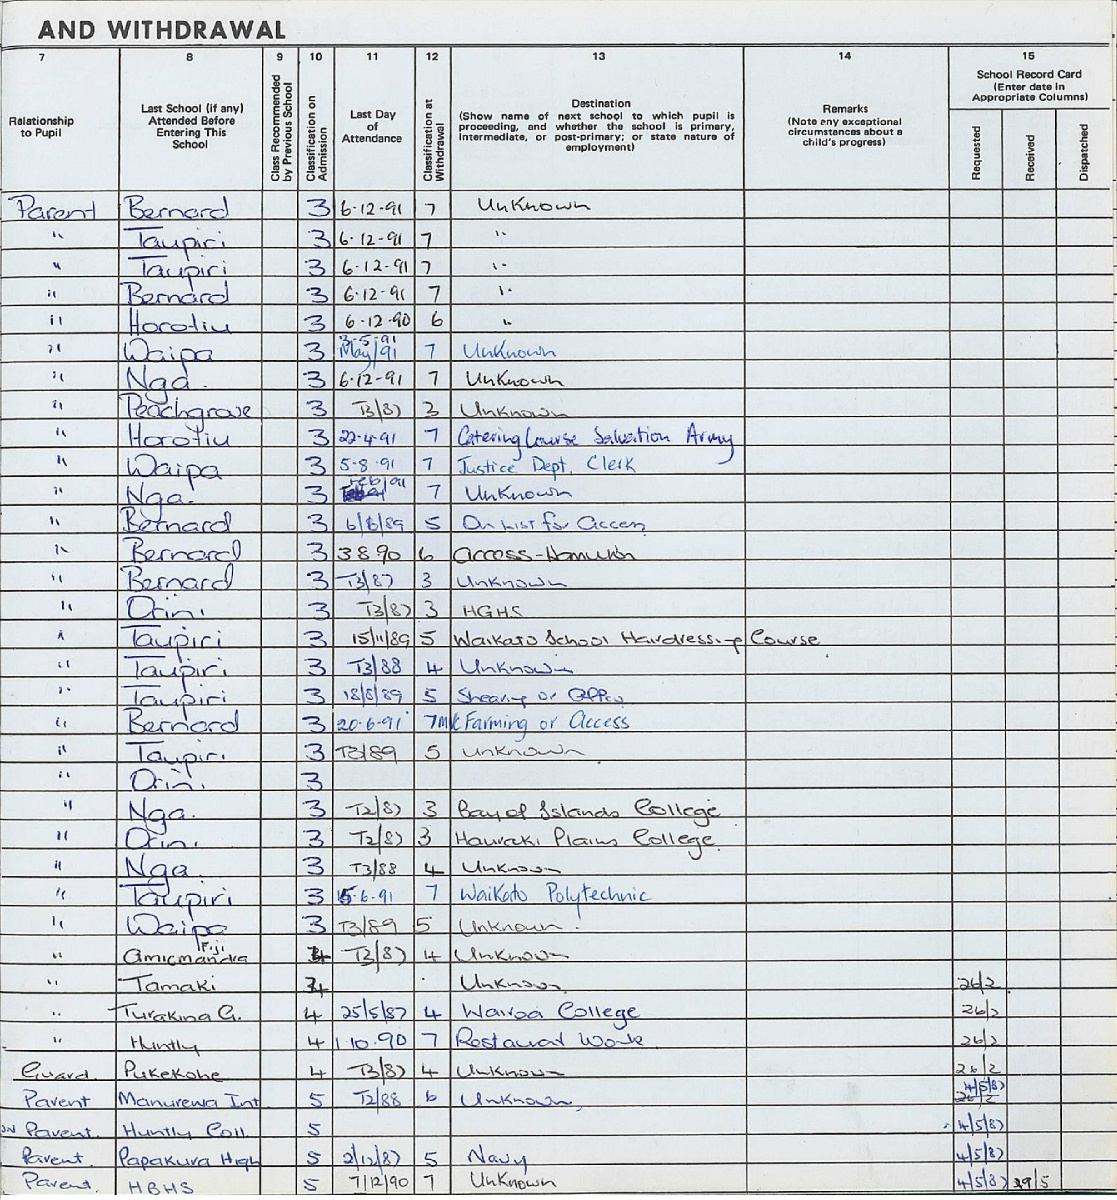 AND WITHDRAWAL
7 8 9 10 11 12 13 14 15
Relationship to Pupil
Last School (if any) Attended Before Entering This School
Class Recommended by Previous School
Classification on Admission
Last Day of Attendance
Classification at Withdrawal
Destination
(Show name of next school to which pupil is proceeding, and whether the school is primary, intermediate, or post-primary; or state nature of employment)
Remarks
(Note any exceptional circumstances about a child's progress)
School Record Card
(Enter date in Appropriate Columns)
Requested
Received
Dispatched
Parent Bernard 3 6-12-91 7 Unknown
" Taupiri 3 6-12-91 7 "
" Taupiri 3 6-12-91 7 "
" Bernard 3 6-12-91 7 "
" Horotiu 3 6-12-90 6 "
" Waipa 3 3-5-91 May/91 7 Unknown
" Nga. 3 6-12-91 7 Unknown
" Peachgrove 3 T3/87 3 Unknown
" Horotiu 3 22-4-91 7 Catering Course Salvation Army
" Waipa 3 5-8-91 7 Justice Dept. Clerk
" Nga. 3 Feb/91 7 Unknown
" Bernard 3 6/6/89 5 On List for Access
" Bernard 3 3 8 90 6 Access-
" Bernard 3 T3/87 3 Unknown
" Orini 3 T3/87 3 HGHS
" Taupiri 3 15/11/89 5 Waikato School Hairdressing Course
" Taupiri 3 T3/88 4 Unknown
" Taupiri 3 18/8/89 5 Shearing or Office
" Bernard 3 20-6-91 7 Farming or Access
" Taupiri 3 T3/89 5 Unknown
" Orini 3
" Nga. 3 T2/87 3 Bay of Islands College
" Orini 3 T2/87 3 Hauraki Plains College
" Nga 3 T3/88 4 Unknown
" Taupiri 3 5-6-91 7 Waikato Polytechnic
" Waipa 3 T3/89 5 Unknown.
" Fiji 4 T3/87 4 Unknown
" Tamaki 4 Unknown 26/2
" Turakina G. 4 25/5/87 4 Wairoa College 26/2
" Huntly 4 1 10-90 7 Restaurat Work 26/2
Guard. Pukekohe 4 T3/87 4 Unknown 26/2
Parent Manurewa Int 5 T2/88 6 Unknown 4/5/87 26/2
Parent. Huntly Coll 5 4/5/87
Parent. Papakura High 5 2/12/87 5 Navy 4/5/87
Parent. HBHS 5 7/12/90 7 Unknown 4/5/87 29/5